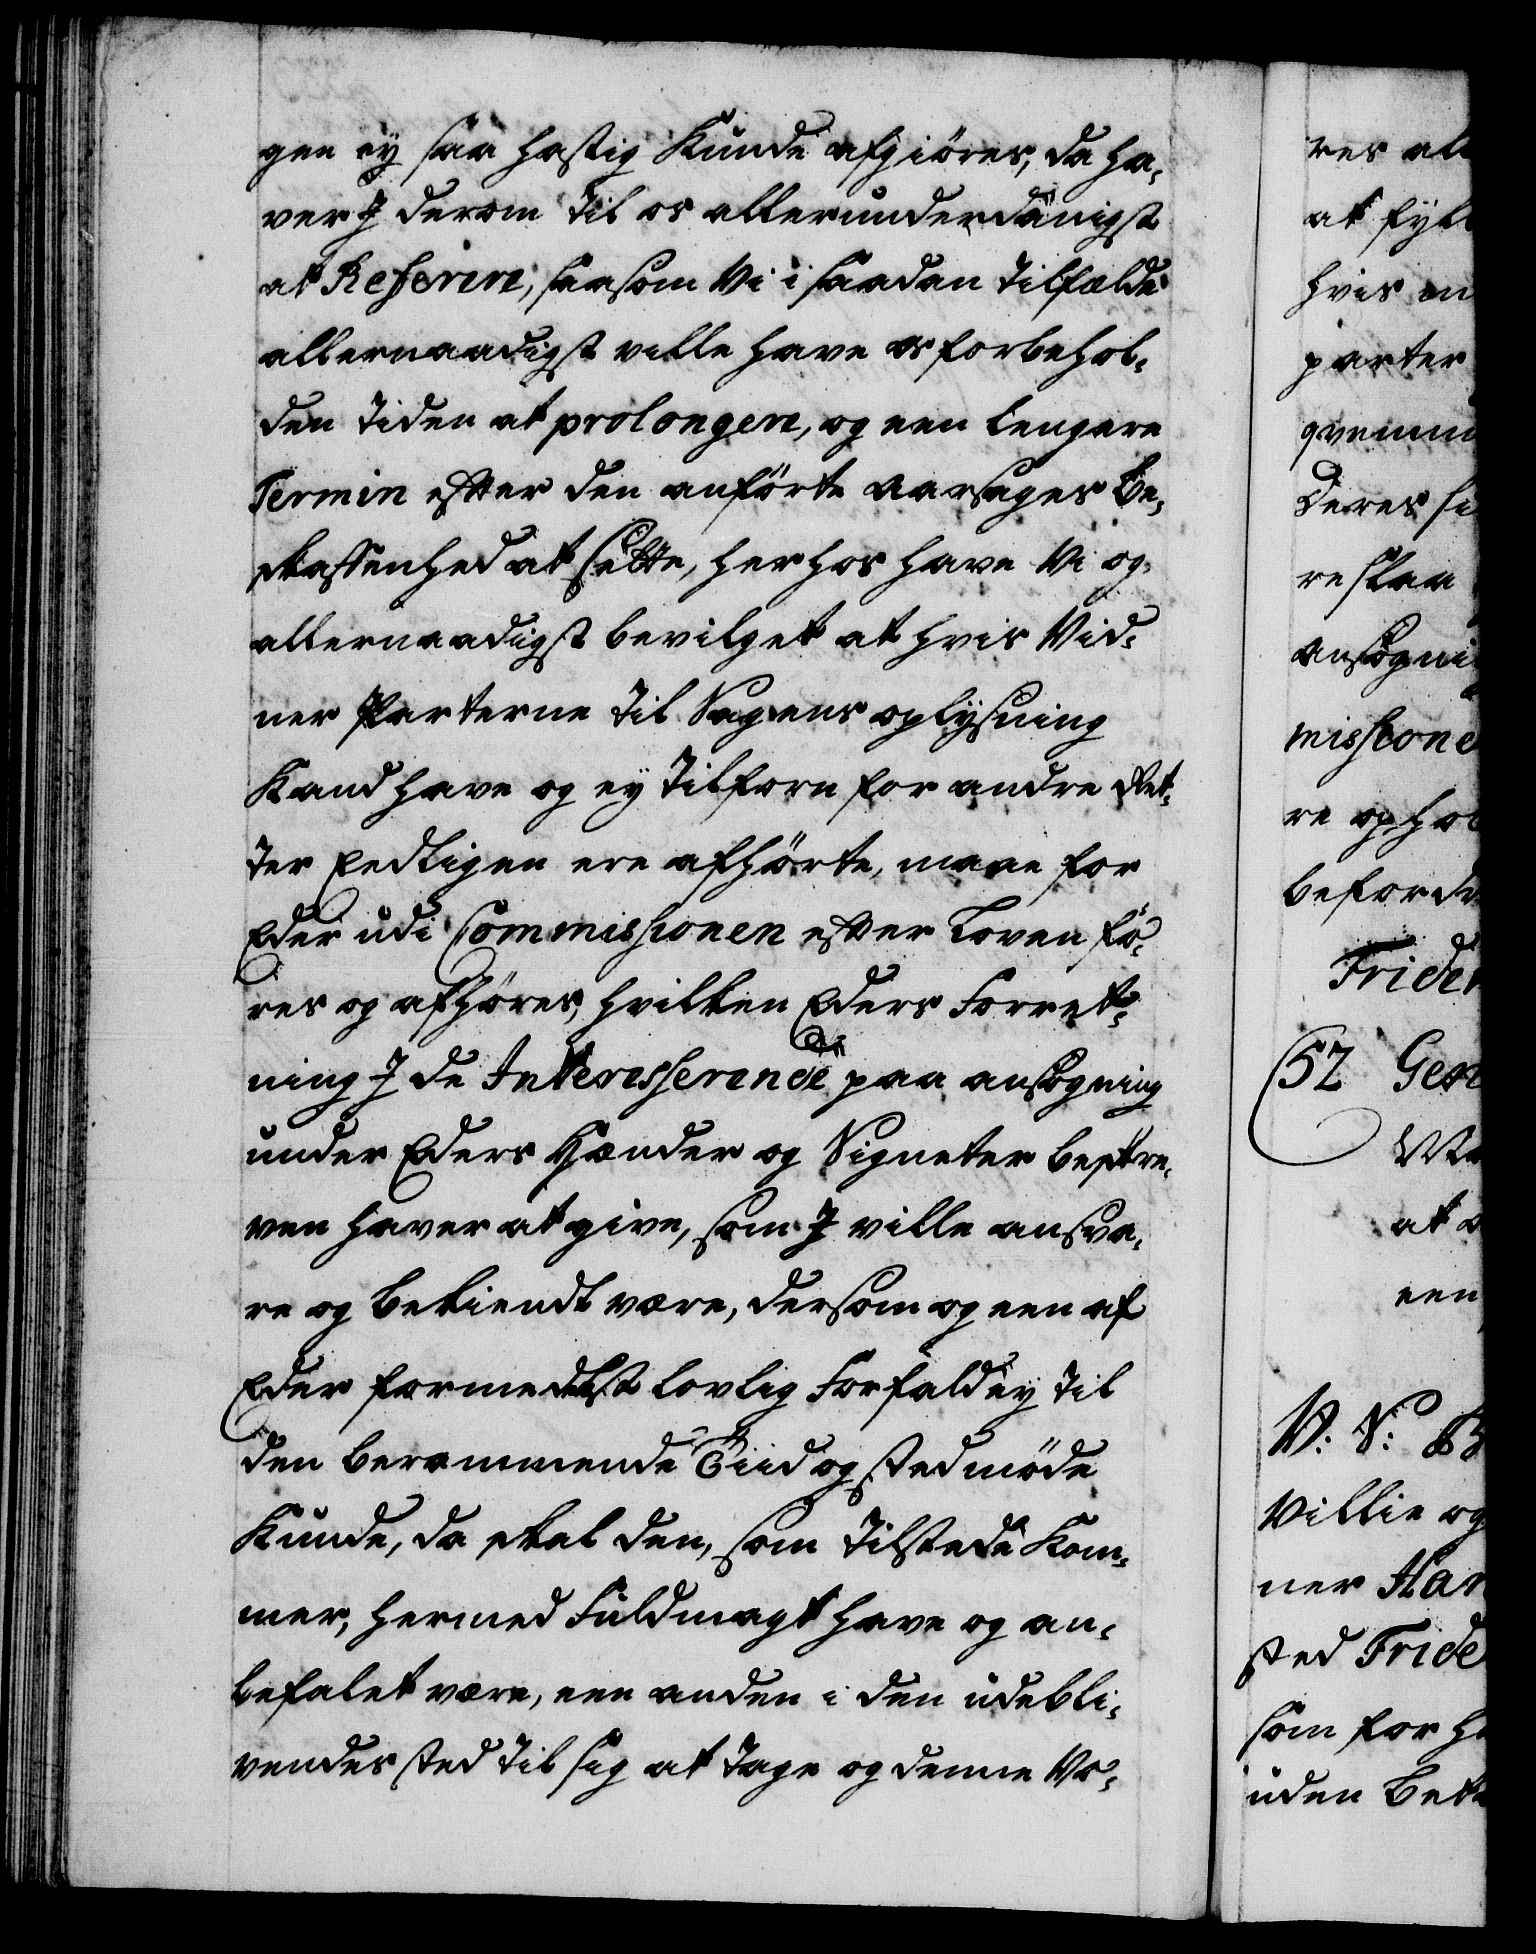 gen ey saa hastig Kunde afgiöres, da ha,
ver I derom til os allerunderdanigst
at Referere, saasom Vi i saadan tilfælde
allernaadigst ville have os forbehol,
den tiden at prolongere, og een lengere
Termin efter den anførte aarsages be,
skaffenhed at sette, herhos have Vi og
allernaadigst bevilget at hvis Vid,
ner Parterne til Sagens oplysning
Kand have og ey tilforn for andre Ret,
ter Eedligen ere afhörte, maae for
Eder udi Commissionen efter Loven fö,
res og afhöres, hvilken Eders Forret,
ning I de Interesserende paa ansögning
under Eders Hænder og Signeter beskre,
ven haver at give, som I ville ansva,
re og bekiendt være, dersom og een af
Eder formedelst lovlig Forfald ey til
den berammende Tiid og sted möde
Kunde, da skal den, som tilstede Kom,
mer, hermed Fuldmagt have og an,
befalet være, een anden i den udebli,
vendes sted til sig at tage og denne Vo,
res all
at fyl
hvis en
parter
qvemm
Deres
re staa
ansögni
missione
re og hol
beford
Frider
52 Gen
at
een
V: S: G
Villie og
ner Han
sted Fride
som for h
uden Bet